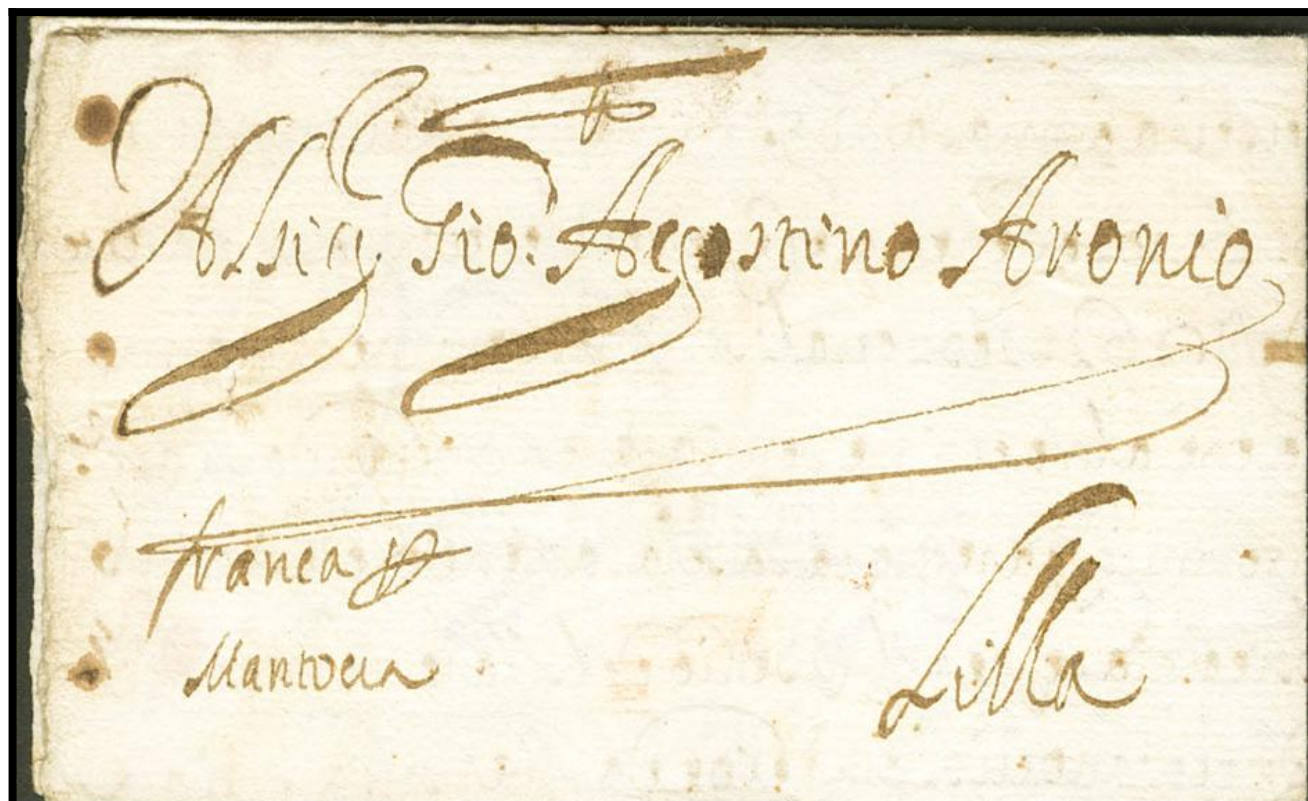 Al Sig Gio: Agostino Aronio
franca p
Mantova
Lilla